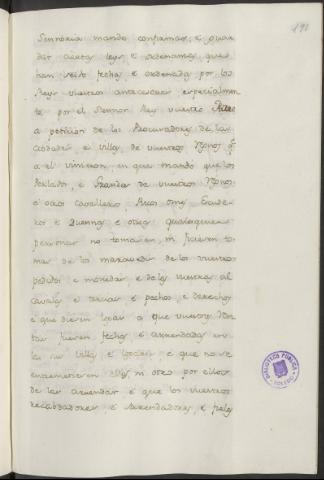 191
Sennoria mando confirmar, é guar
dar ciertas leyes é ordenamos que
han seido fechas é ordenadas por los
Reyes vuestros antecesores, especialmen
te por el Sennor Rey vuestro Padre
a peticion de los Procuradores de las
Cibdades é Villas de vuestros Regnos q.e
a el vinieron en que mando que los
Perlados, é Grandes de vuestros Regnos
é otros cavalleros Ricos omes Escude
ros é Duennas é otras qualesquier
personas no tomasen, ni ficiesen to
mar de los maravedis de los vuestros
pedidos é monedas, é de las vuestras al
cavalas é tercias é pechos, é derechos
é que diesen logar a que vuestras Ren
tas fuesen fechas é arrendadas en
las sus Villas é logares é que no se
entremetiesen ellos, ni otros por ellos
de las arrendar é que los vuestros
recabdadores é Arrendadores, é fieles
BIBLIOTECA PUBLICA
TOLEDO